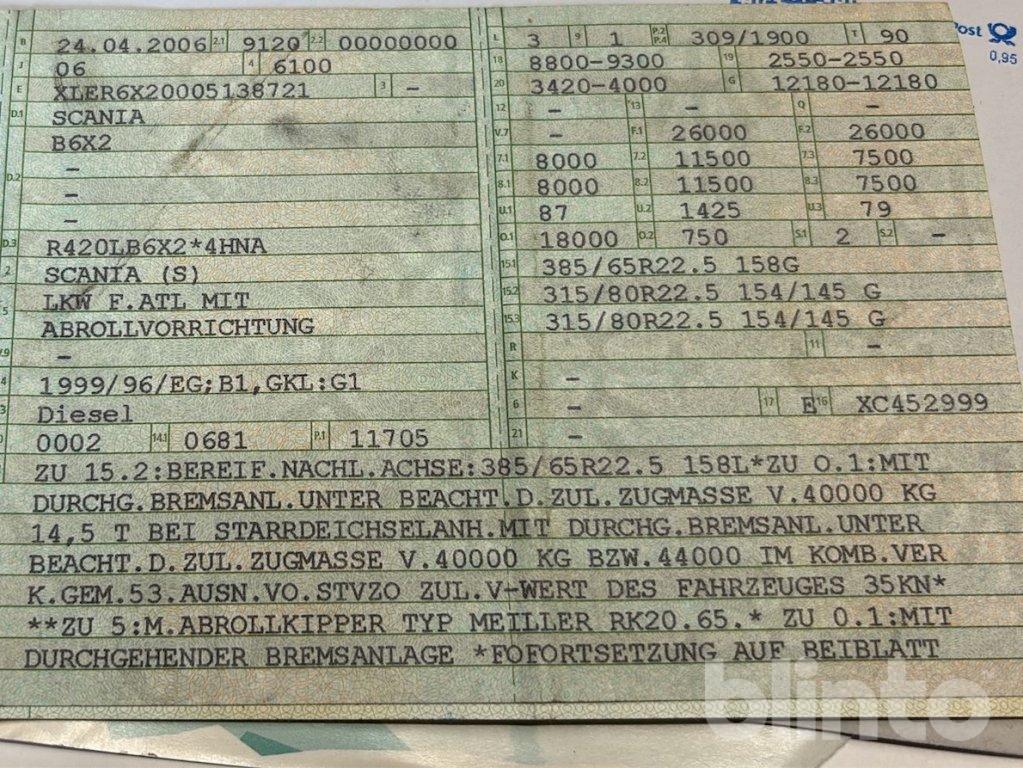 B 24.04.2006 2.1 9120 2.2 00000000
J 06 4 6100
E XLER6X20005138721 3 –
D.1 SCANIA
B6X2
–
D.2 –
–
D.3 R420LB6X2*4HNA
2 SCANIA (S)
5 LKW F.ATL MIT
ABROLLVORRICHTUNG
V.9 –
1999/96/EG;B1,GKL:G1
Diesel
0002 14.1 0681 P.1 11705
L 3 9 1 P.2 P.4 309/1900 T 90
18 8800-9300 19 2550-2550
20 3420-4000 G 12180-12180
12 – 13 – Q –
V.7 – F.1 26000 F.2 26000
7.1 8000 7.2 11500 7.3 7500
8.1 8000 8.2 11500 8.3 7500
U.1 87 U.2 1425 U.3 79
O.1 18000 O.2 750 S.1 2 S.2 –
15.1 385/65R22.5 158G
15.2 315/80R22.5 154/145 G
15.3 315/80R22.5 154/145 G
R – 11 –
K –
6 – 17 E 16 XC452999
21 –
ZU 15.2:BEREIF.NACHL.ACHSE:385/65R22.5 158L*ZU O.1:MIT
DURCHG.BREMSANL.UNTER BEACHT.D.ZUL.ZUGMASSE V.40000 KG
14,5 T BEI STARRDEICHSELANH.MIT DURCHG.BREMSANL.UNTER
BEACHT.D.ZUL.ZUGMASSE V.40000 KG BZW.44000 IM KOMB.VER
K.GEM.53.AUSN.VO.STVZO ZUL.V-WERT DES FAHRZEUGES 35KN*
**ZU 5:M.ABROLLKIPPER TYP MEILLER RK20.65.* ZU O.1:MIT
DURCHGEHENDER BREMSANLAGE *FOFORTSETZUNG AUF BEIBLATT
Post
0,95
blinto